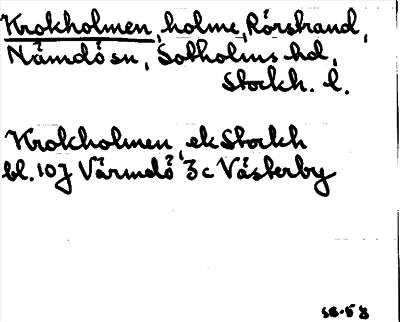 Krokholmen, holme, Rörstrand,
Nämdö sn, Sotholms hd,
Stockh. l.
Krokholmen, ek Stockh
bl. 107 Värmdö 3c Västerby